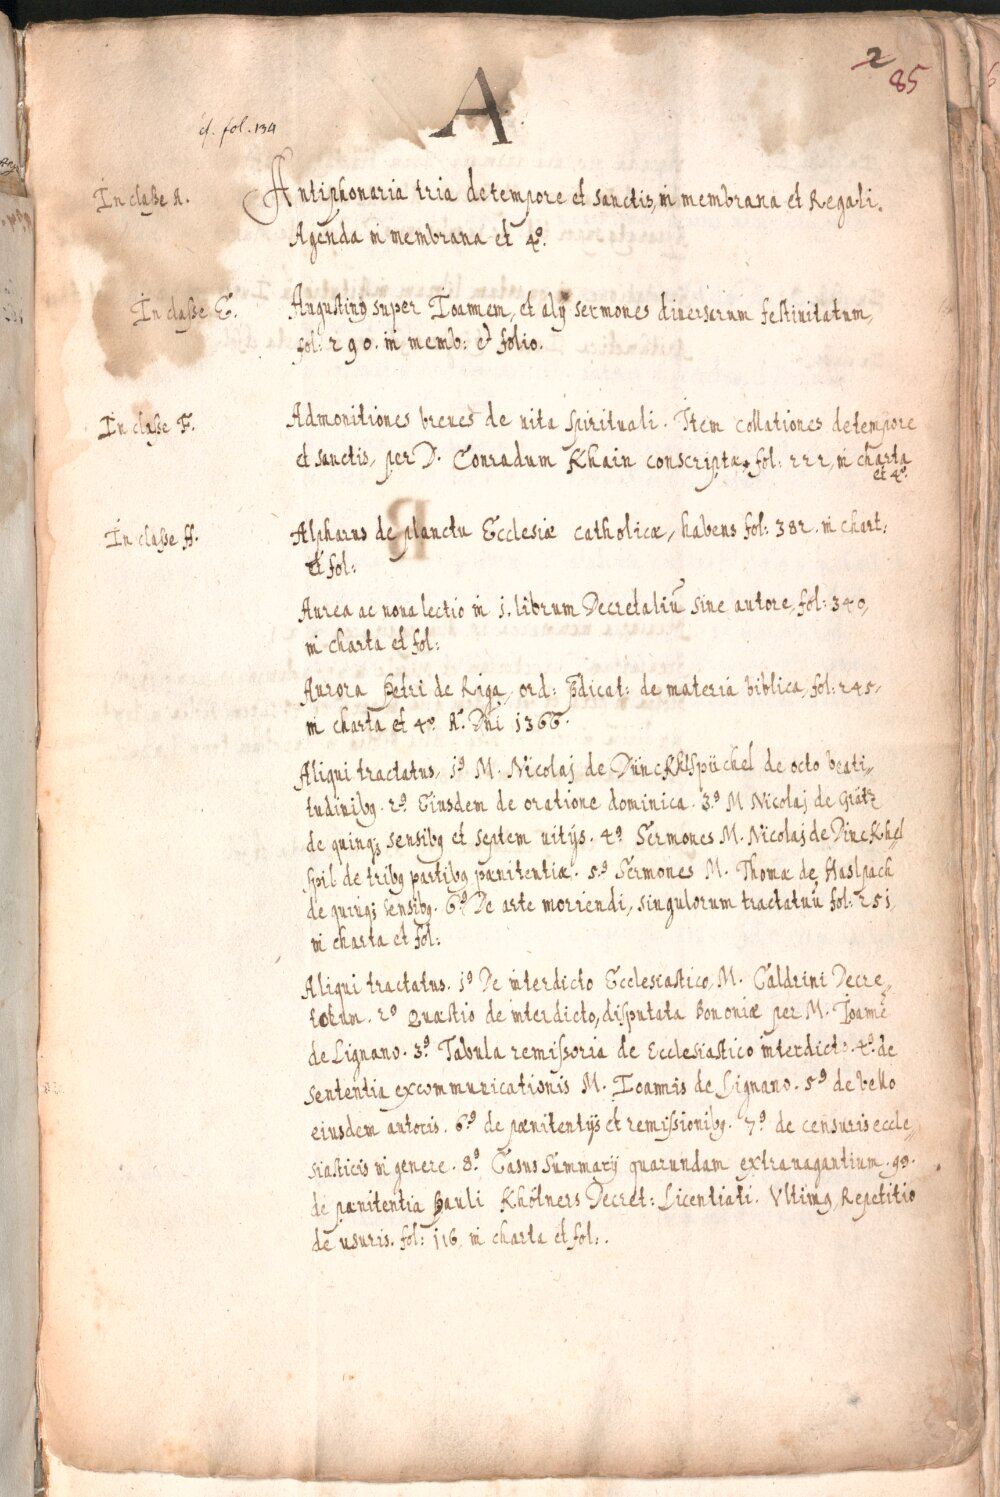 2
85
A
cf. fol. 134
In classe A.
Antiphonaria tria de tempore et sanctis, in membrana et Regali.
Agenda in membrana et 4º.
In classe E.
Augustinꝰ super Ioannem, et alij sermones diuersarum festiuitatum,
fol: 290. in memb: et folio.
In classe F.
Admonitiones breues de uita spirituali. Item collationes de tempore
et sanctis, per D. Conradum Khain conscriptæ, fol: 222, in charta
et 4º.
In classe H.
Alpharus de planctu Ecclesiæ catholicæ, habens fol: 382. in chart:
et fol:
Aurea ac noua lectio in j. librum Decretaliū sine autore, fol: 340,
in charta et fol:
Aurora Petri de Riga, ord: Pdicat: de materia biblica, fol: 245,
in charta et 4º A.º Dñi 1366.
Aliqui tractatus, jº M. Nicolaj de Dünckhlspüchel de octo beati„
tudinibꝫ. 2º Eiusdem de oratione dominica. 3º M Nicolaj de Grätz
de quinqꝫ sensibꝫ et septem uitijs. 4º Sermones M. Nicolaj de Dinckhel„
spil de tribꝫ partibꝫ pœnitentiæ. 5º Sermones M. Thomæ de Haslpach
de quinqꝫ sensibꝫ. 6º De arte moriendi, singulorum tractatuū fol: 251,
in charta et fol:
Aliqui tractatus. jº De interdicto Ecclesiastico, M. Caldrini Decre„
torum. 2º Quæstio de interdicto, disputata Bononiæ per M. Ioannē
de Lignano. 3º Tabula remissoria de Ecclesiastico interdicto. 4º de
sententia excommunicationis M. Ioannis de Lignano. 5º de bello
eiusdem autoris. 6º de pœnitentijs et remissionibꝫ. 7º de censuris eccle„
siasticis in genere. 8º Casus summarij quarundam extrauagantium. 9º.
de pœnitentia Pauli Khölners Decret: Licentiati. Vltimꝰ, Repetitio
de usuris. fol: 116, in charta et fol:.